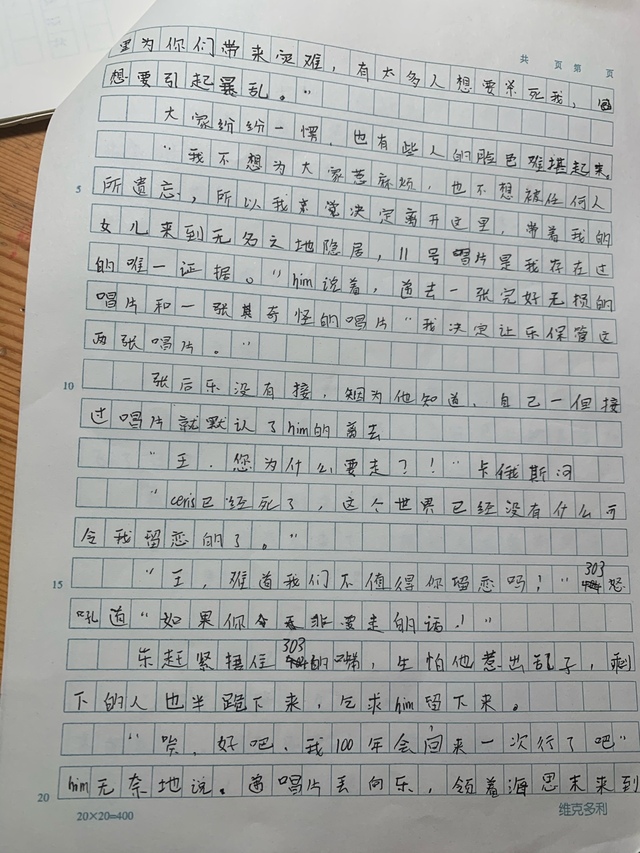 共 页 第 页
里为你们带来灾难，有太多人想要杀死我，
想要引起暴乱。"
大家纷纷一愣，也有些人的脸色难堪起来
"我不想为大家惹麻烦，也不想被任何人
5 所遗忘，所以我亲觉决定离开这里，带着我的
女儿来到无名之地隐居，11号唱片是我存在过
的唯一证据。"him说着，递去一张完好无损的
唱片和一张其奇怪的唱片"我决定让乐保管这
两张唱片。"
10 张后乐没有接，因为他知道，自己一但接
过唱片就默认了him的离去
"王，您为什么要走？！"卡俄斯问
"ceris已经死了，这个世界已经没有什么可
令我留恋的了。"
15 "王，难道我们不值得你留恋吗！"303怒
吼道"如果你今天非要走的话！"
乐赶紧捂住303的嘴，生怕他惹出乱子，剩
下的人也半跪下来，乞求him留下来。
"唉，好吧，我100年会回来一次行了吧"
20 him无奈地说。递唱片丢向乐，领着海思末来到
20×20=400 维克多利